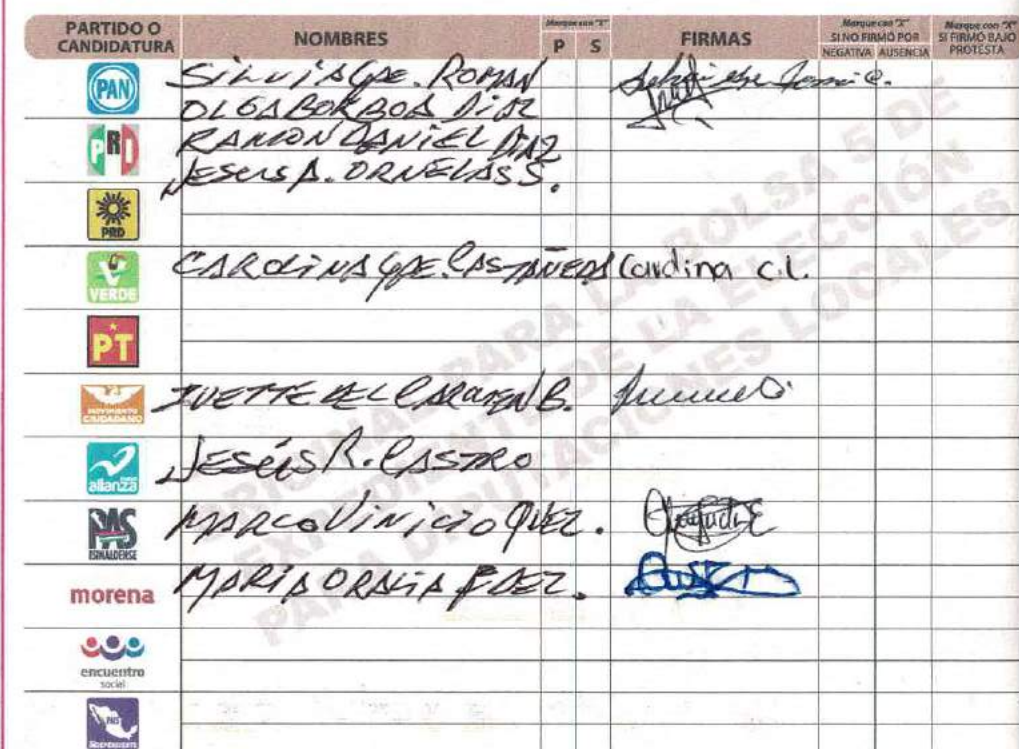 PARTIDO O CANDIDATURA
NOMBRES
Marque con "X"
P S
FIRMAS
Marque con "X"
SI NO FIRMÓ POR
NEGATIVA AUSENCIA
Marque con "X"
SI FIRMÓ BAJO
PROTESTA
PAN
SILVIA GPE. ROMAN
OLGA BORBOA DIAZ
PRI
RAMON DANIEL DIAZ
JESUS A. ORNELAS S.
PRD
VERDE
CAROLINA GPE. CASTAÑEDA Carolina c.l.
PT
MOVIMIENTO CIUDADANO
IVETTE DEL CARMEN B.
alianza
JESÚS R. CASTRO
PAS
SINALOENSE
MARCO VINICIO
morena
MARIA ORALIA
encuentro
social
INDEPENDIENTE
ORIGINAL PARA LA BOLSA 5 DE
EXPEDIENTE DE LA ELECCIÓN
PARA DIPUTACIONES LOCALES